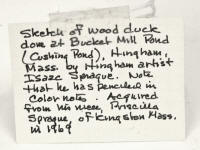 Sketch of wood duck
done at Bucket Mill Pond
(Cushing Pond), Hingham,
Mass. by Hingham artist
Isaac Sprague. Note
that he has penciled in
color notes. Acquired
from his niece, Priscilla
Sprague, of Kingston Mass.
in 1969